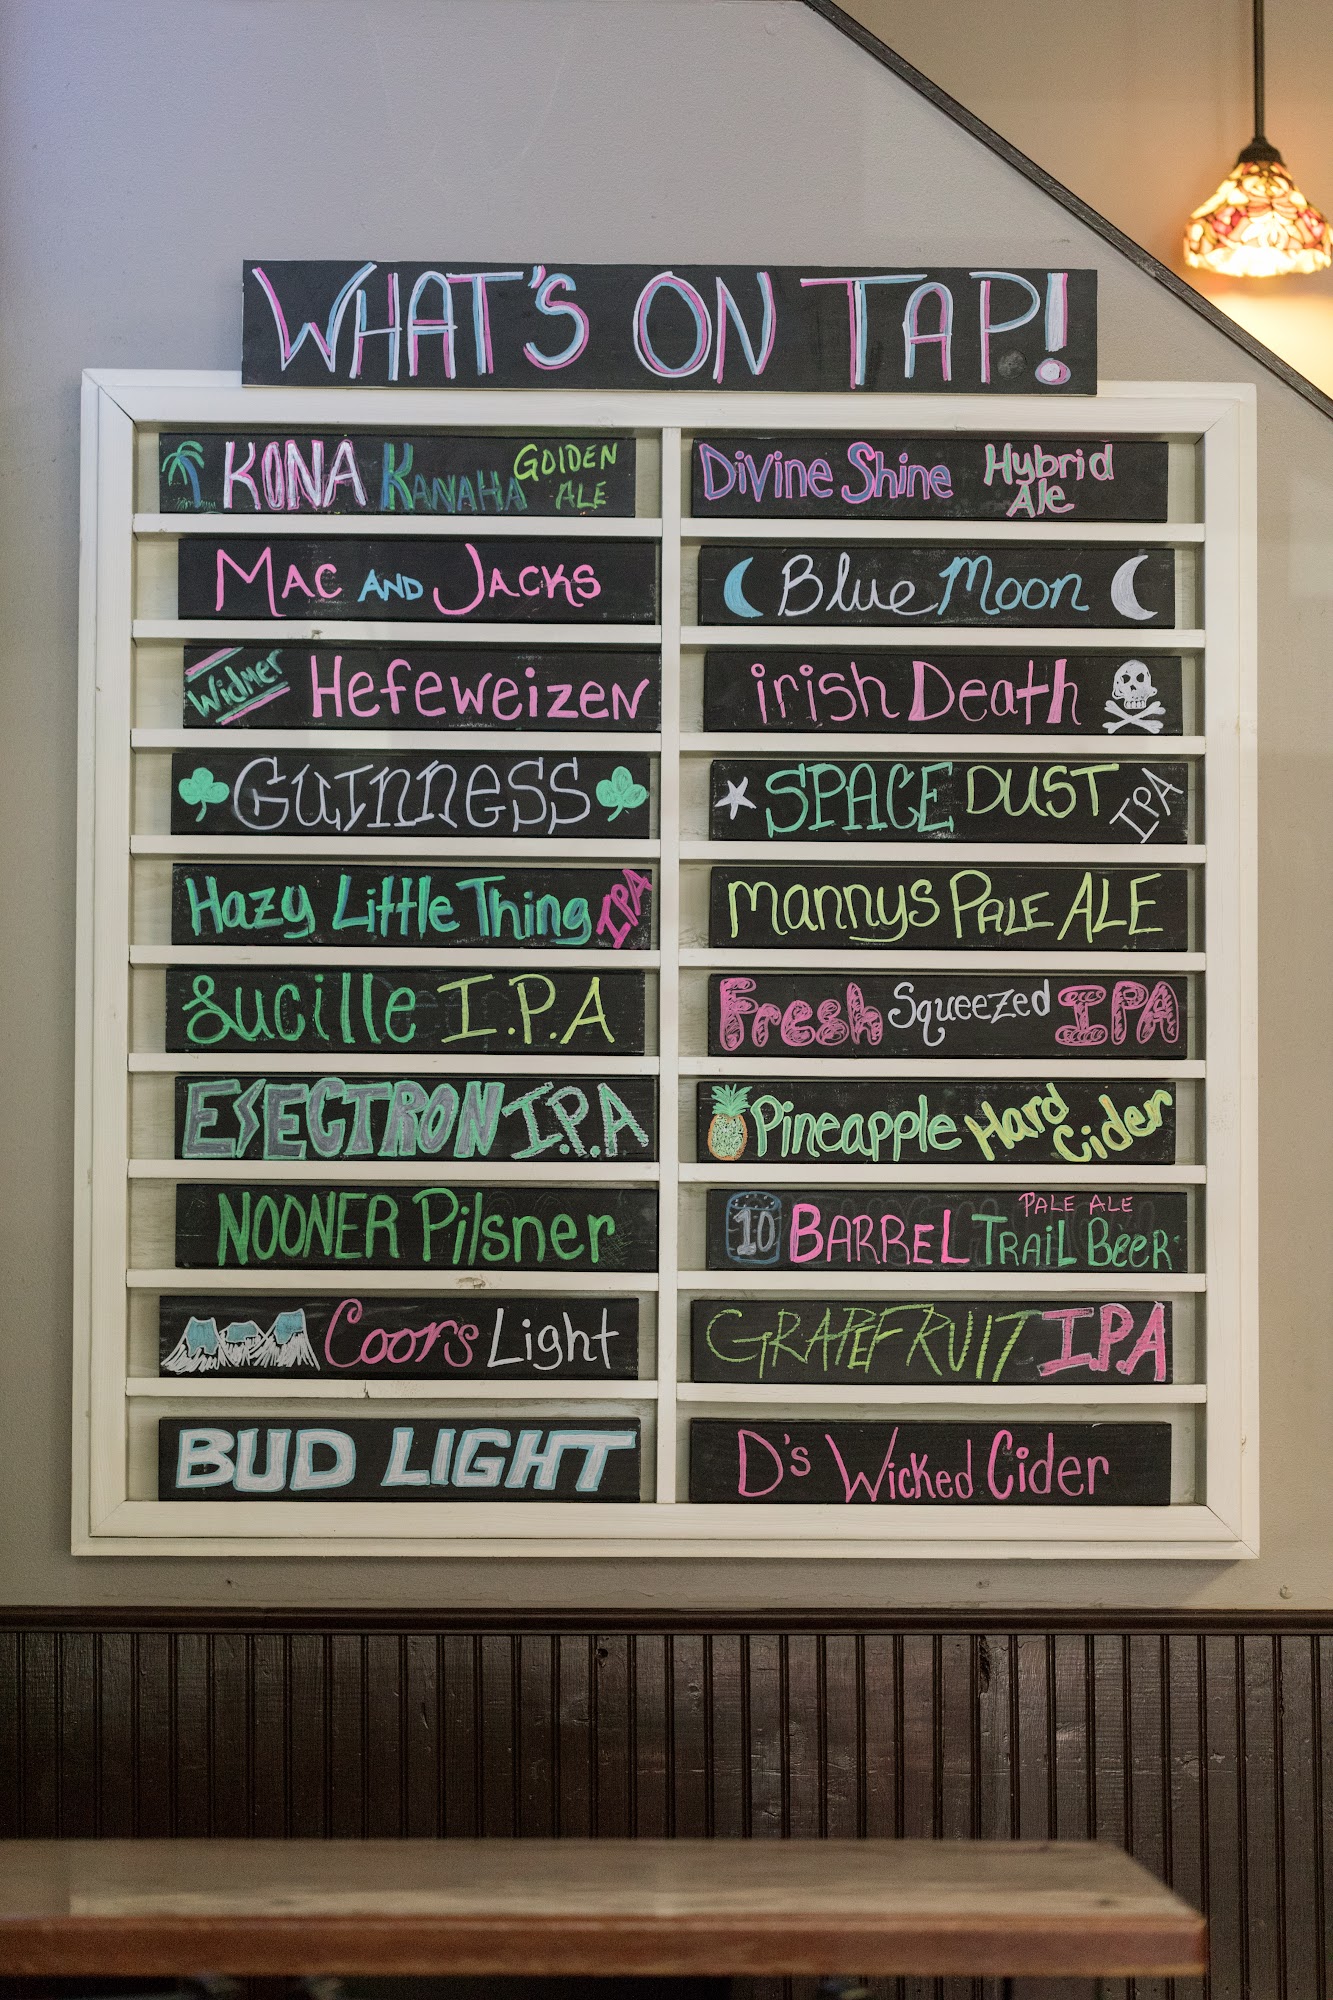 WHAT'S ON TAP!
KONA KANAHA GOLDEN ALE
MAC AND JACKS
Widmer Hefeweizen
GUINNESS
Hazy Little Thing IPA
Lucille I.P.A
ELECTRON I.P.A
NOONER Pilsner
Coors Light
BUD LIGHT
Divine Shine Hybrid Ale
Blue Moon
irish Death
SPACE DUST IPA
mannys PALE ALE
Fresh Squeezed IPA
Pineapple Hard Cider
10 BARREL TRAIL BEER PALE ALE
GRAPEFRUIT I.P.A
D's Wicked Cider